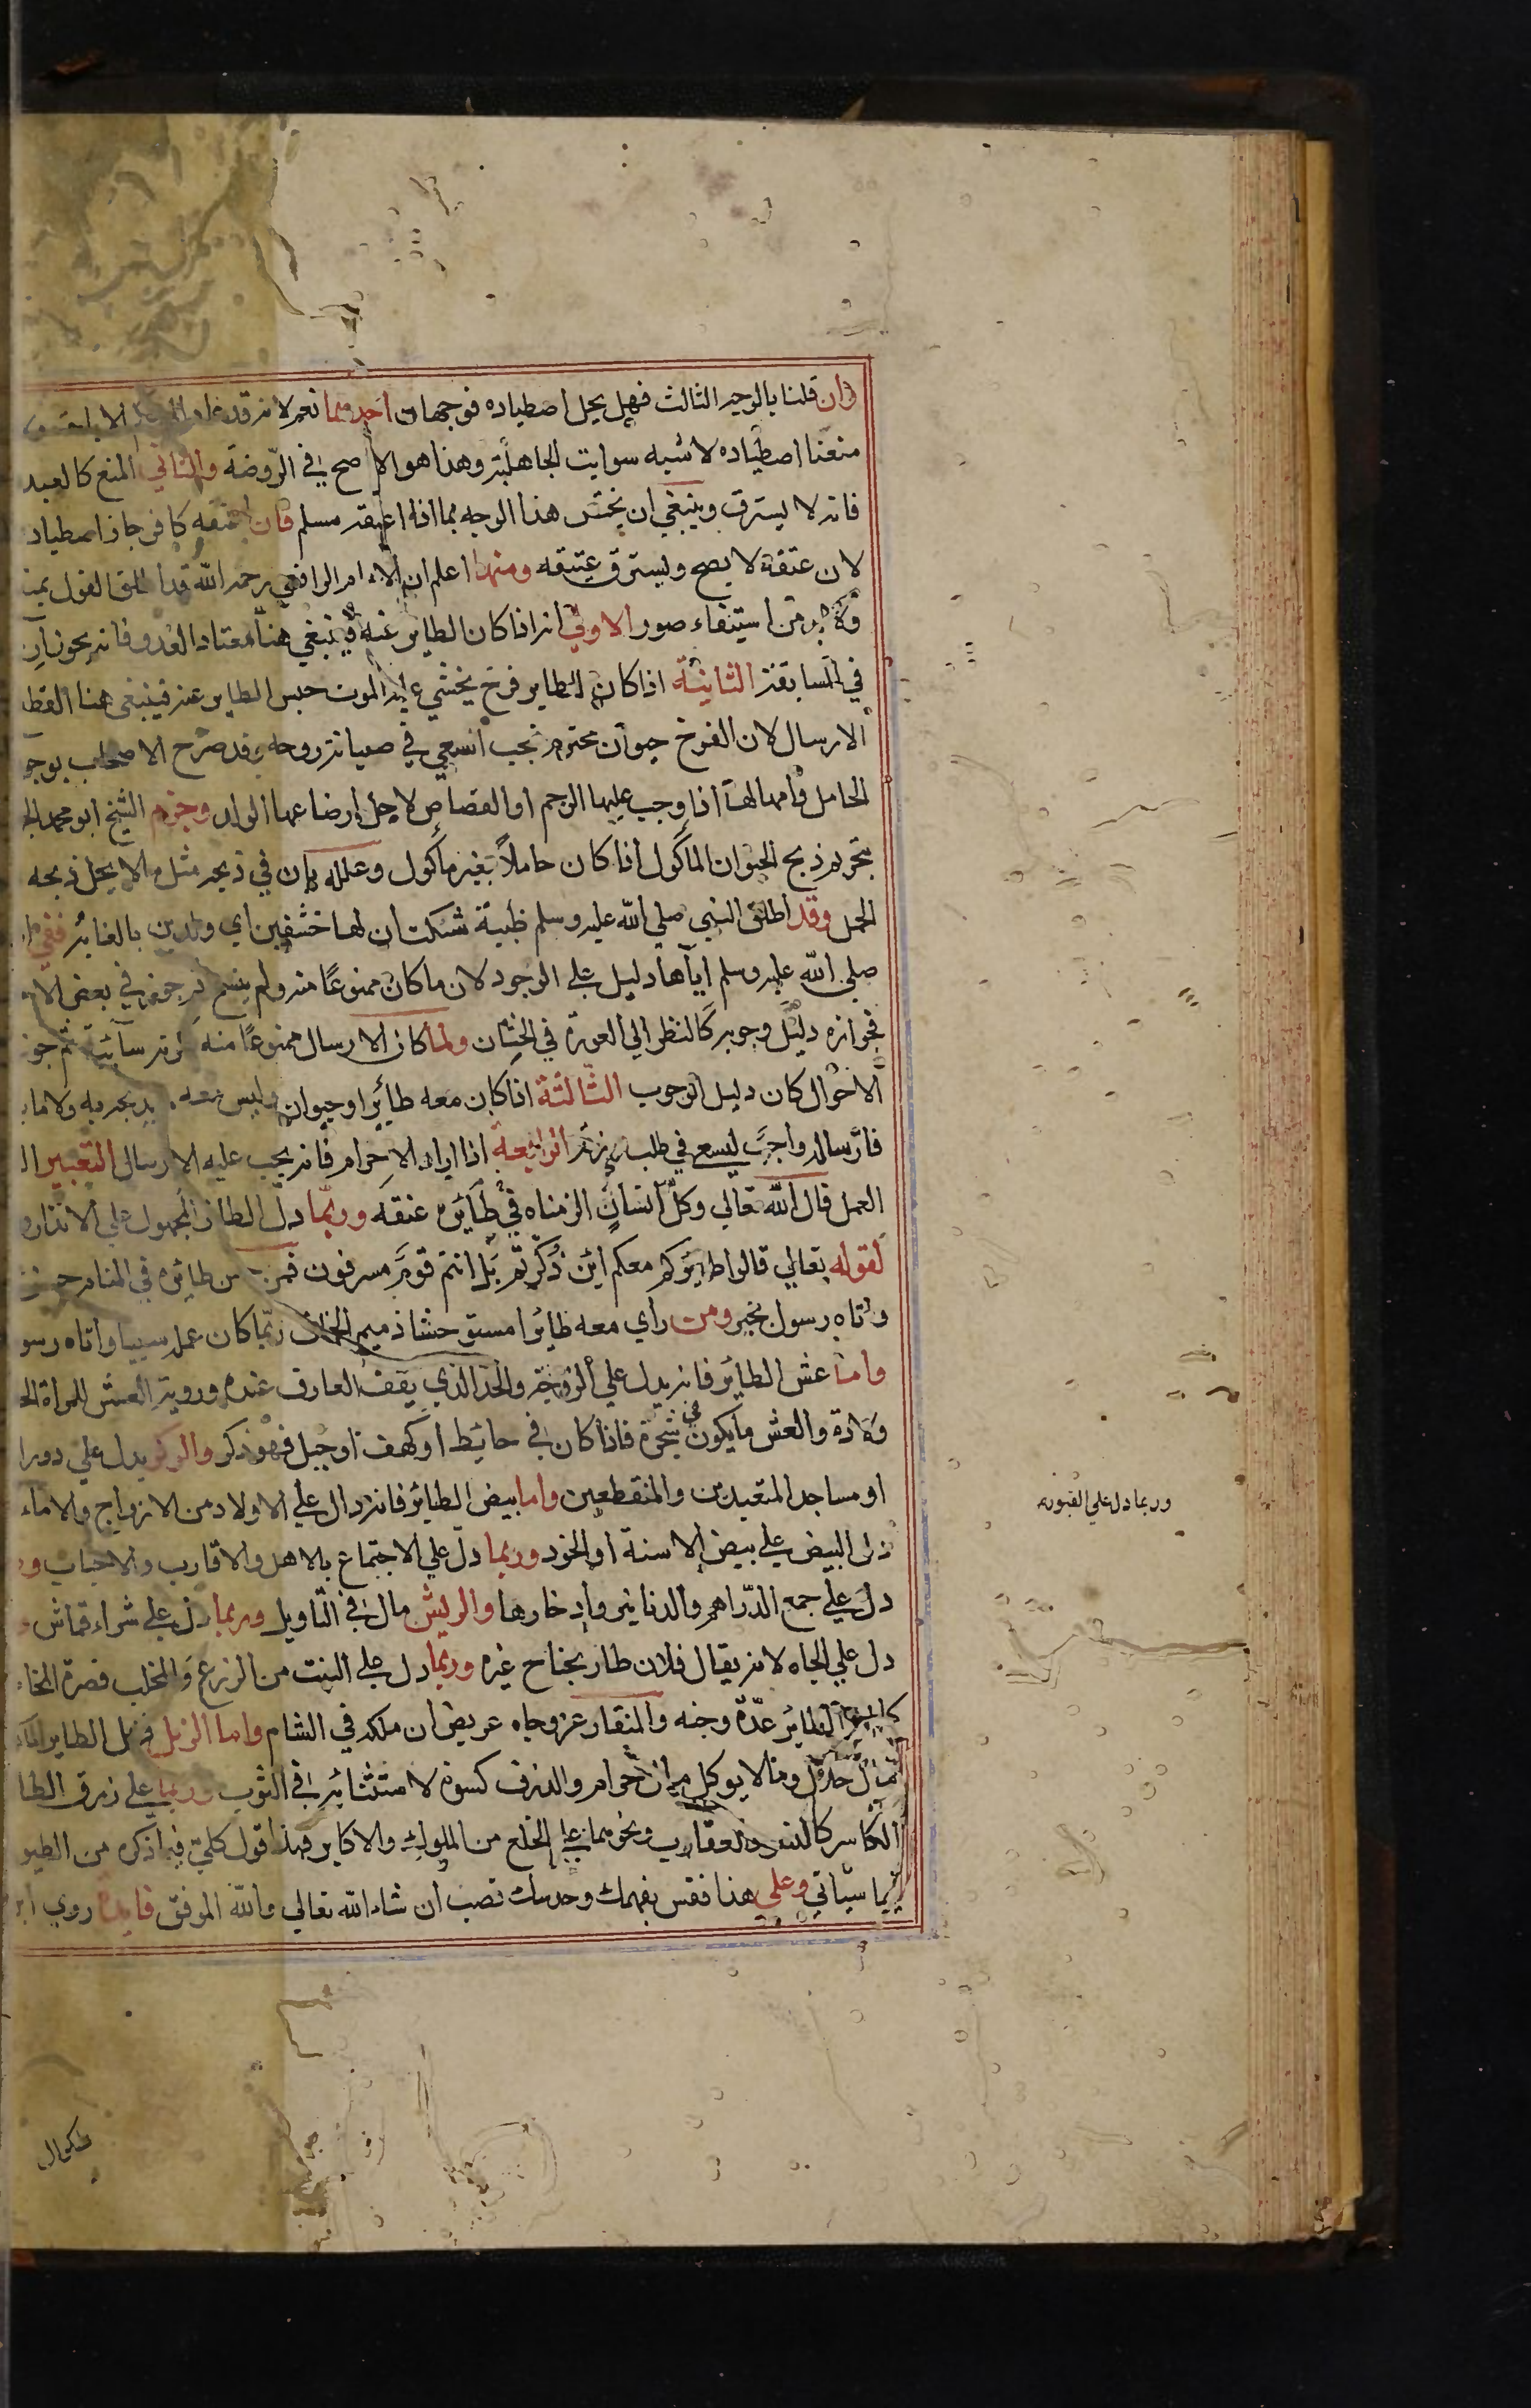 وان قلنا بالوجه الثالث فهل يحل اصطياده فوجهان احدهما نعم لانه قد عاد الي الاباحة
منعنا اصطياده لاشبه سوايب الجاهلية وهذا هو الاصح في الروضة والثاني المنع كالعبد
فانه لا يسترق وينبغي ان يختص هذا الوجه بما اذا اعتقه مسلم فان اعتقه كافر جاز اصطياد
لان عتقه لا يصح ويسترق عتيقه ومنها اعلم ان الامام الرافعي رحمه الله قد اطلق القول بمنـ
ولا بد من استيتفاء صور الاولي انه اذا كان الطاير فينبغي هنا معتاد العدو فانه يجوز ار
في المسابقة الثانية اذا كان للطاير فرخ يخشي عليه الموت حبس الطاير عنه فينبغي هنا القط
الارسال لان الفرخ حيوان محترم يجب السعي في صيانة روحه وقد صرح الاصحاب بوجو
الحامل وامهالها اذا وجب عليها الرجم او القصاص لاجل ارضاعها الولد وجزم الشيخ ابو محمد الجـ
بتحريم ذبح الحيوان الماكول اذا كان حاملاً بغير ماكول وعلله بان في ذبحه مثل ما لا يحل ذبحه
الحمل وقد اطلق النبي صلي الله عليه وسلم ظبية شكت ان لها خشفين اي ولدين بالغابة ففي
صلي الله عليه وسلم اياها دليل علي الوجود لان ما كان ممنوعاً منه ولم ينسخ ثم جوز في بعض الا
فجوازه دليل وجوبه كالنظر الي العورة في الختان ولما كان الارسال ممنوعاً منه لانه سايبة ثم جوز
الاحوال كان دليل الوجوب الثالثة اذا كان معه طائر او حيوان وليس معه ما يذبحه به ولا ما
فارساله واجب ليسعي في طلب رزقه الرابعة اذا اراد الاحرام فانه يجب عليه الارسال التعبير ا
العمل قال الله تعالي وكل انسان الزمناه طائره في عنقه وربما دل الطائر المجهول علي الانذار و
لقوله تعالي قالوا طائركم معكم ائن ذكرتم بل انتم قوم مسرفون فمن حسن طائره في المنام
واتاه رسول بخير ومن راي معه طائرا مستوحشا ذميم الخلق ربما كان عمله سييا واتاه رسو
واما عش الطائر فانه يدل علي الزوجة والحد الذي يقف العارف عنده وروية العش للمراة الحا
ولادة والعش ما يكون في شجرة فاذا كان في حائيط او كهف او جبل فهو ذكر والوكر يدل علي دور ا
وربما دل علي القبور
او مساجد المتعبدين والمنقطعين واما بيض الطائر فانه دال علي الاولاد من الازواج والاماء
دل البيض علي بيض الاسنة او الخود وربما دل علي الاجتماع بالاهل والاقارب والاحباب ور
دل علي جمع الدراهم والدنانير وادخارها والريش مال في التاويل وربما دل علي شراء قماش و
دل علي الجاه لانه يقال فلان طار بجناح غيره وربما دل علي النبت من الزرع والمخلب نصرة
الطائر عدة وجنه والمنقار عز وجاه عريض ان ملكه في المنام واما الزبل فزبل الطاير
حلال وما لا يوكل حرام والذرق كسوة لا متثائيه في الثوب وربما علي زرق الطا
الكاسر كالنسور والعقارب ونحوهما علي الخلع من الملوك والاكابر فهذا قول كلي فيما اذكره من الطيو
فيما سياتي وعلي هذا فقس بفهمك وحدسك تصب ان شاء الله تعالي والله الموفق فايدة روي ابو